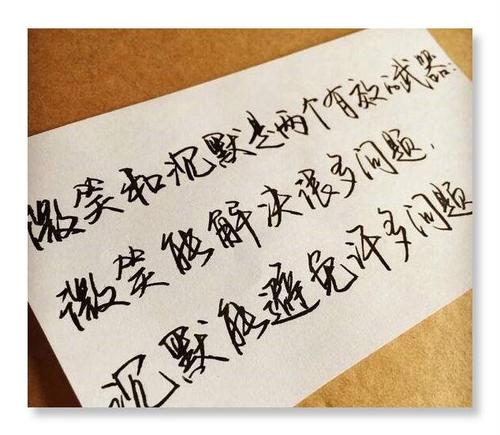 微笑和沉默是两个有效的武器:
微笑能解决很多问题,
沉默能避免许多问题